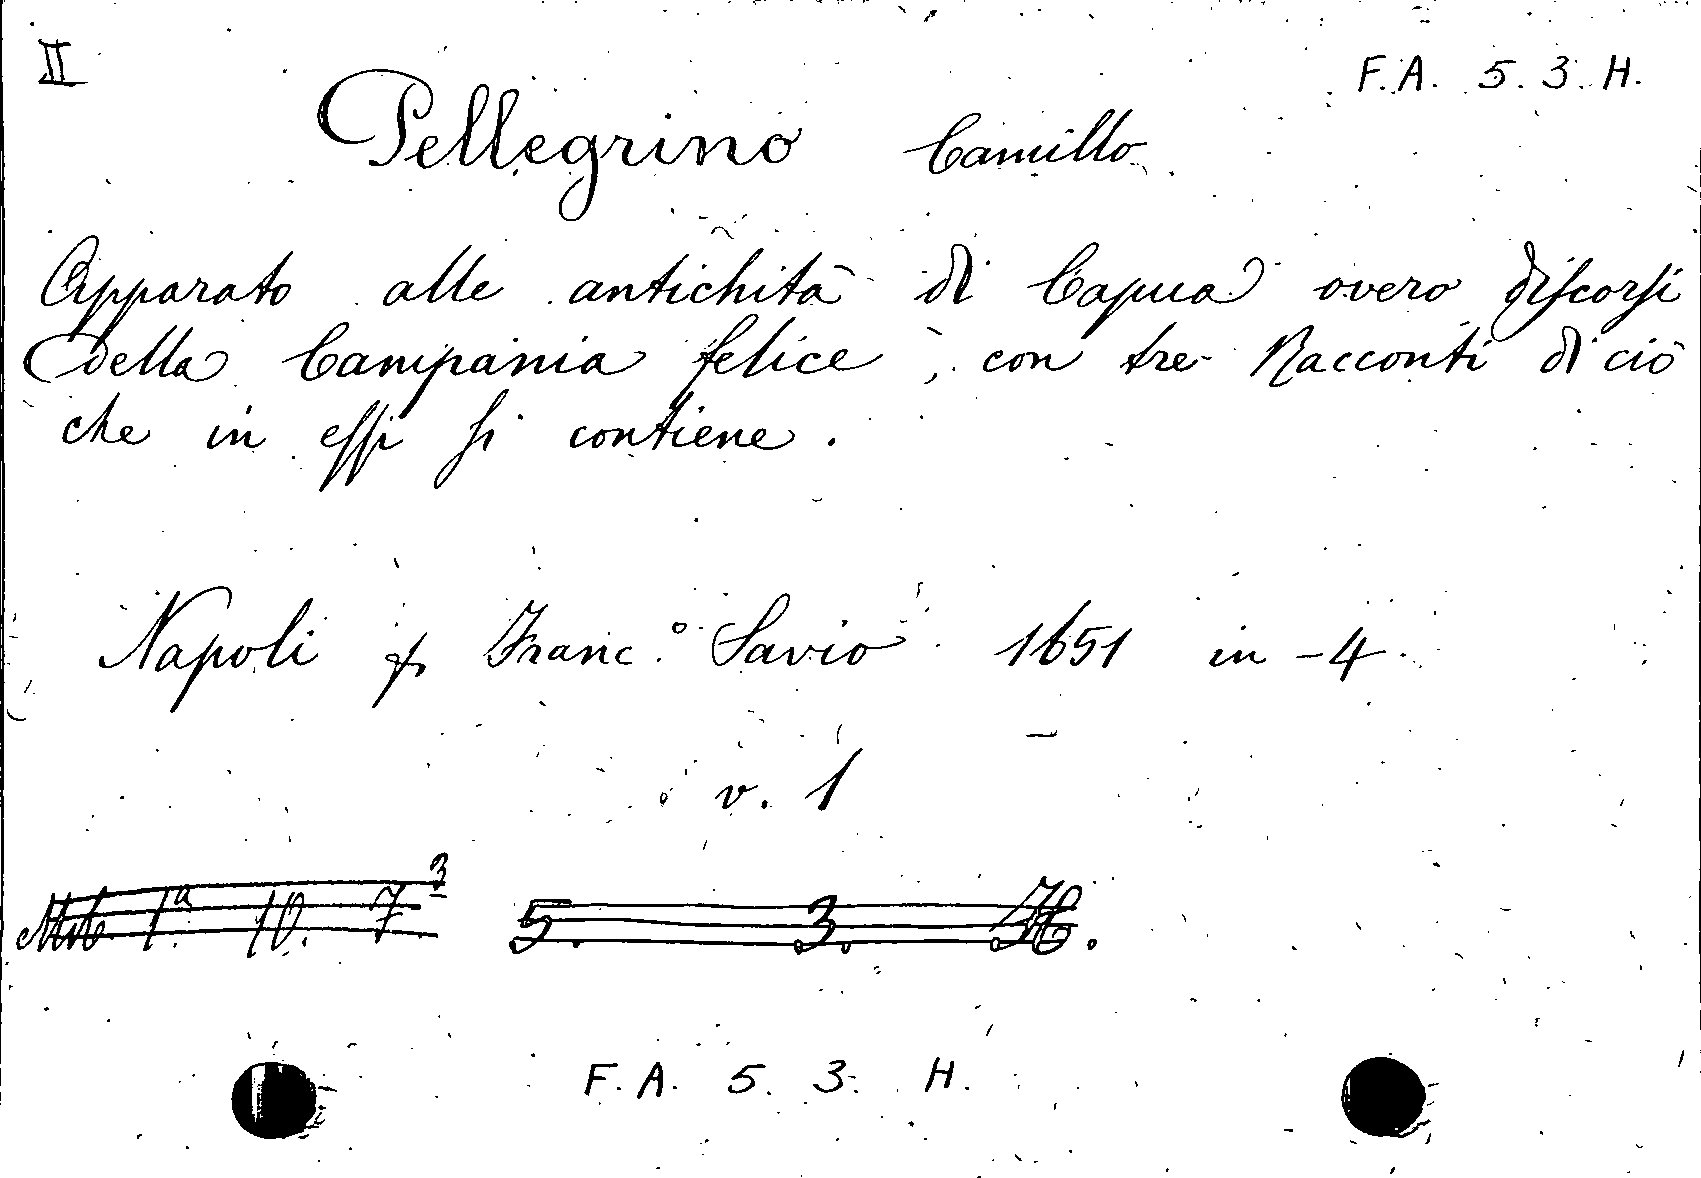 II
F.A. 5. 3. H.
Pellegrino Camillo
Apparato alle antichità di Capua overo diſcorſi
della Campania felice, con tre Racconti di ciò
che in eſſi ſi contiene.
Napoli Franc.º Savio 1651 in-4.
v. 1
1ª. 10. 7³ 5. 3. H.
F. A. 5. 3. H.